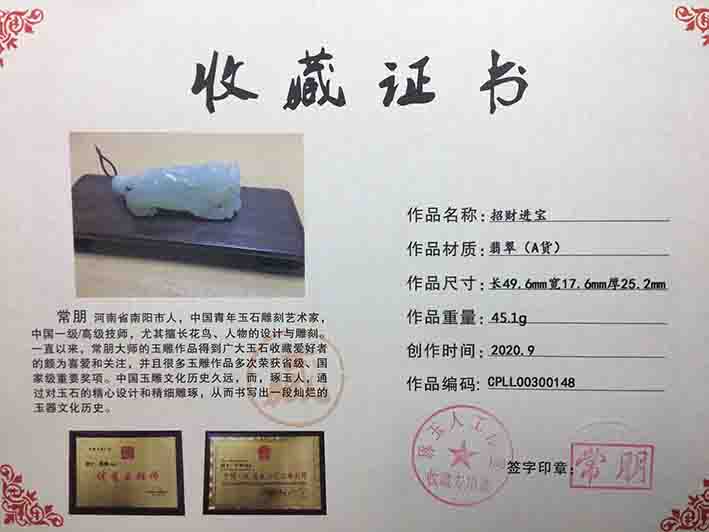 收藏证书
作品名称：招财进宝
作品材质：翡翠（A货）
作品尺寸：长49.6mm宽17.6mm厚25.2mm
作品重量：45.1g
创作时间：2020.9
作品编码：CPLL00300148
常朋 河南省南阳市人，中国青年玉石雕刻艺术家，
中国一级/高级技师，尤其擅长花鸟、人物的设计与雕刻。
一直以来，常朋大师的玉雕作品得到广大玉石收藏爱好者
的颇为喜爱和关注，并且很多玉雕作品多次荣获省级、国
家级重要奖项。中国玉雕文化历史久远，而，琢玉人，通
过对玉石的精心设计和精细雕琢，从而书写出一段灿烂的
玉器文化历史。
签字印章：
常朋